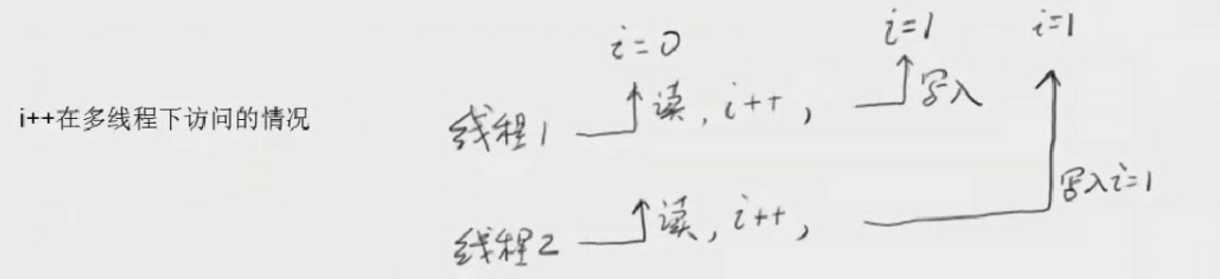 i=0 i=1 i=1
i++在多线程下访问的情况
线程1 读, i++, 写入
线程2 读, i++, 写入i=1